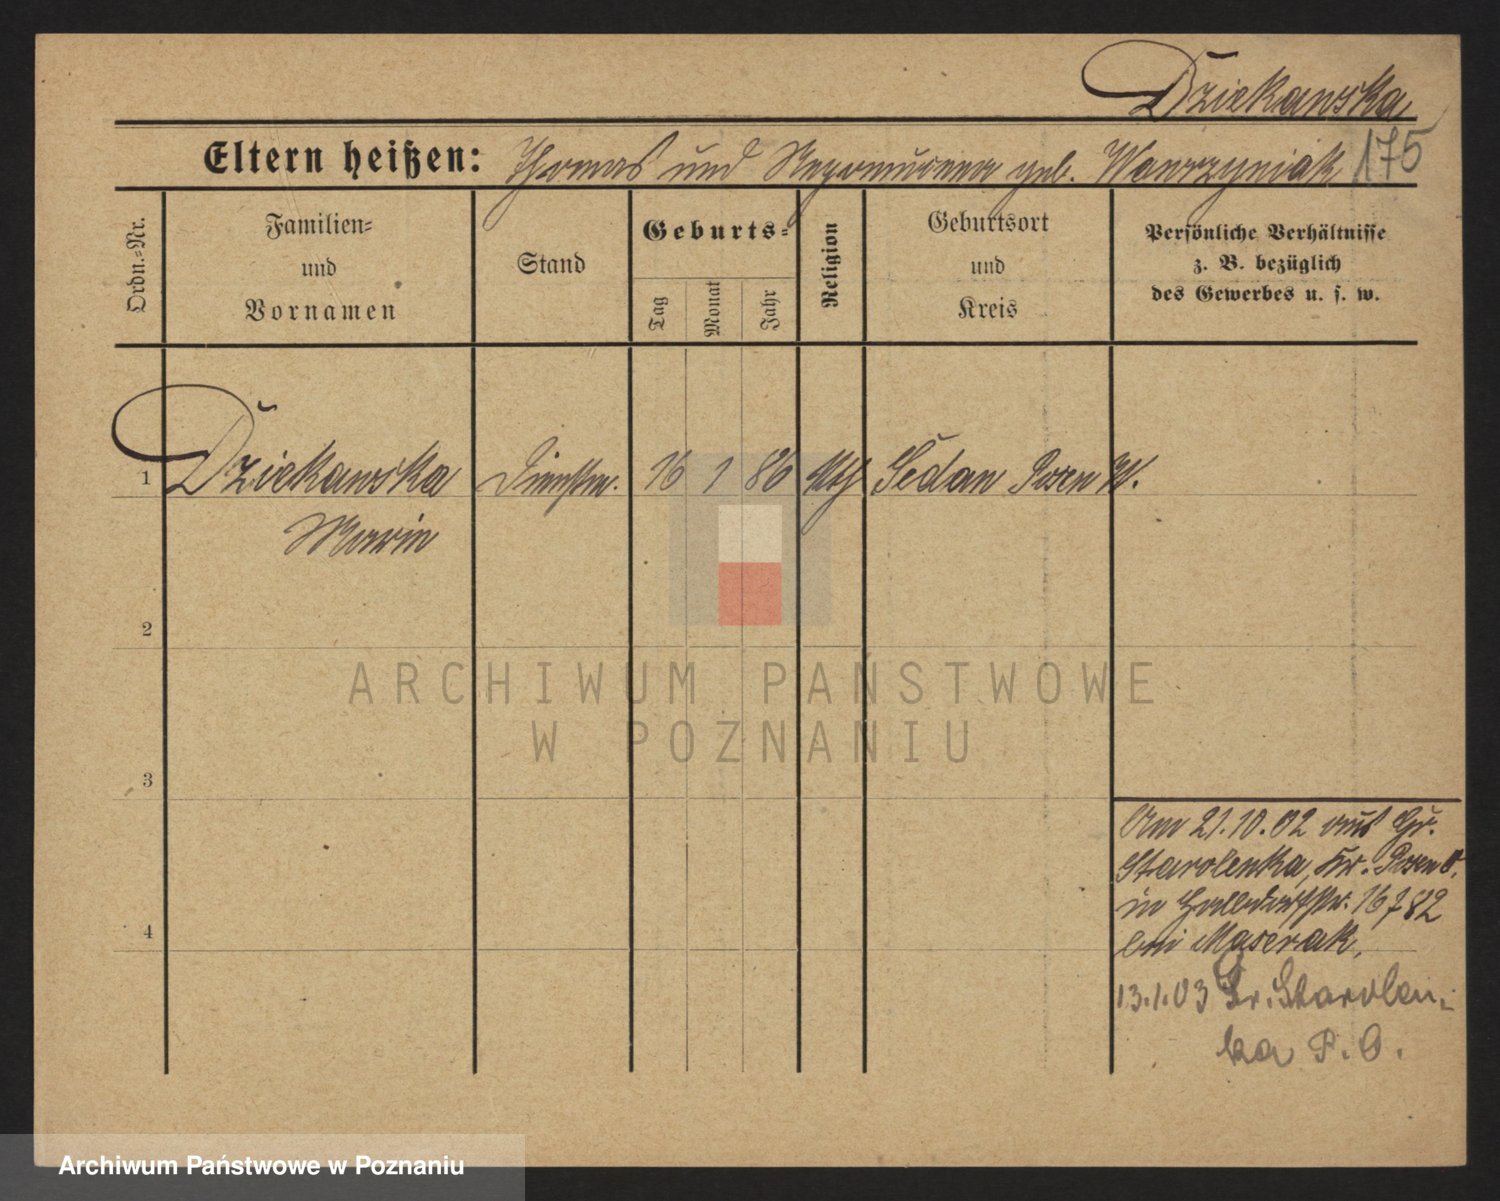 Dziekanska
175
Eltern heißen: Thomas und Nepomucena geb. Wawrzyniak
Ordn.-Nr.
Familien-
und
Vornamen
Stand
Geburts-
Tag
Monat
Jahr
Religion
Geburtsort
und
Kreis
Persönliche Verhältnisse
z. B. bezüglich
des Gewerbes u. s. w.
1 Dziekanska Dienstm. 16 1 86 kth Sedan Posen W.
Marie
2
ARCHIWUM PAŃSTWOWE
W POZNANIU
3
Am 21.10.02 aus Gr.
Starolenka, Kr. Posen O.
in 16 782
4
bei Maserak.
13.1.03 Gr. Starolen-
ka P. O.
Archiwum Państwowe w Poznaniu